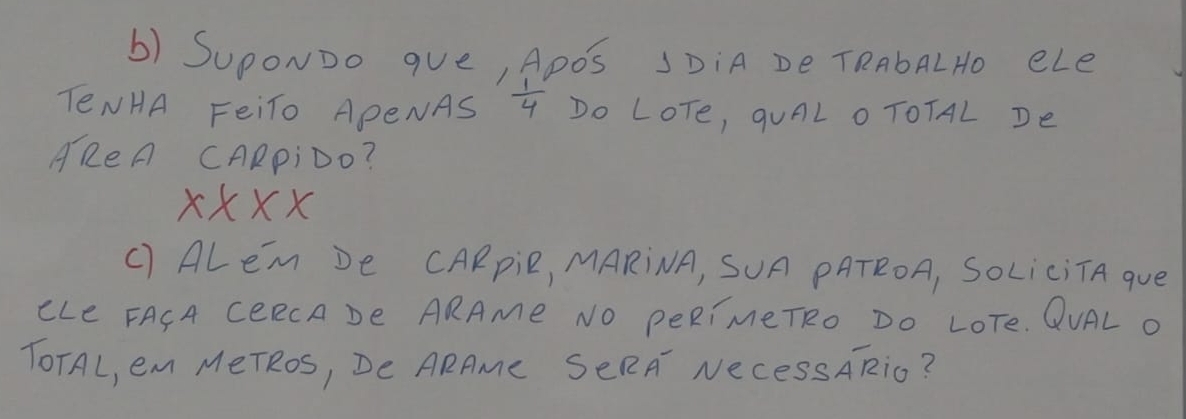 b) SUPONDO QUE, APÓS 1 DIA DE TRABALHO ELE
TENHA FEITO APENAS 1/4 DO LOTE, QUAL O TOTAL DE
ÁREA CARPIDO?
XXXX
C) ALÉM DE CARPIR, MARINA, SUA PATROA, SOLICITA QUE
ELE FAÇA CERCA DE ARAME NO PERÍMETRO DO LOTE. QUAL O
TOTAL, EM METROS, DE ARAME SERÁ NECESSÁRIO?